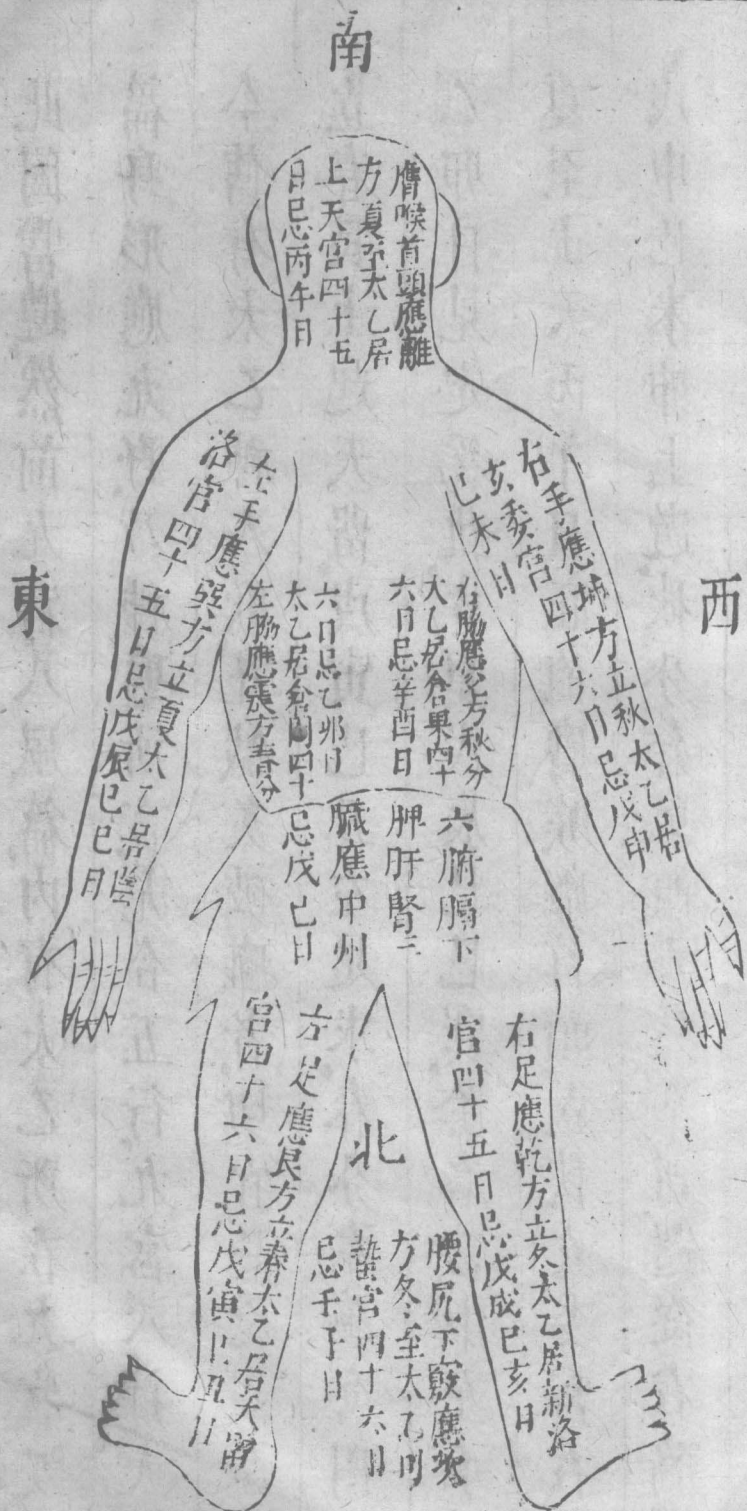 南
膺喉首頭應離
方夏至太乙居
上天宮四十五
日忌丙午日
西
右手應坤方立秋太乙居
玄委宮四十六日忌戊申
己未日
東
左手應巽方立夏太乙居陰
洛宮四十五日忌戊辰己巳日
右脇應兌方秋分
太乙居倉果四十
六日忌辛酉日
左脇應震方春分
太乙居倉門四十
六日忌乙卯日
六腑膈下
脾肝腎三
臟應中州
忌戊己日
右足應乾方立冬太乙居新洛
宮四十五日忌戊戌己亥日
北
腰尻下竅應坎
方冬至太乙叶
蟄宮四十六日
忌壬子日
足應艮方立春太乙居天留
宮四十六日忌戊寅己丑日